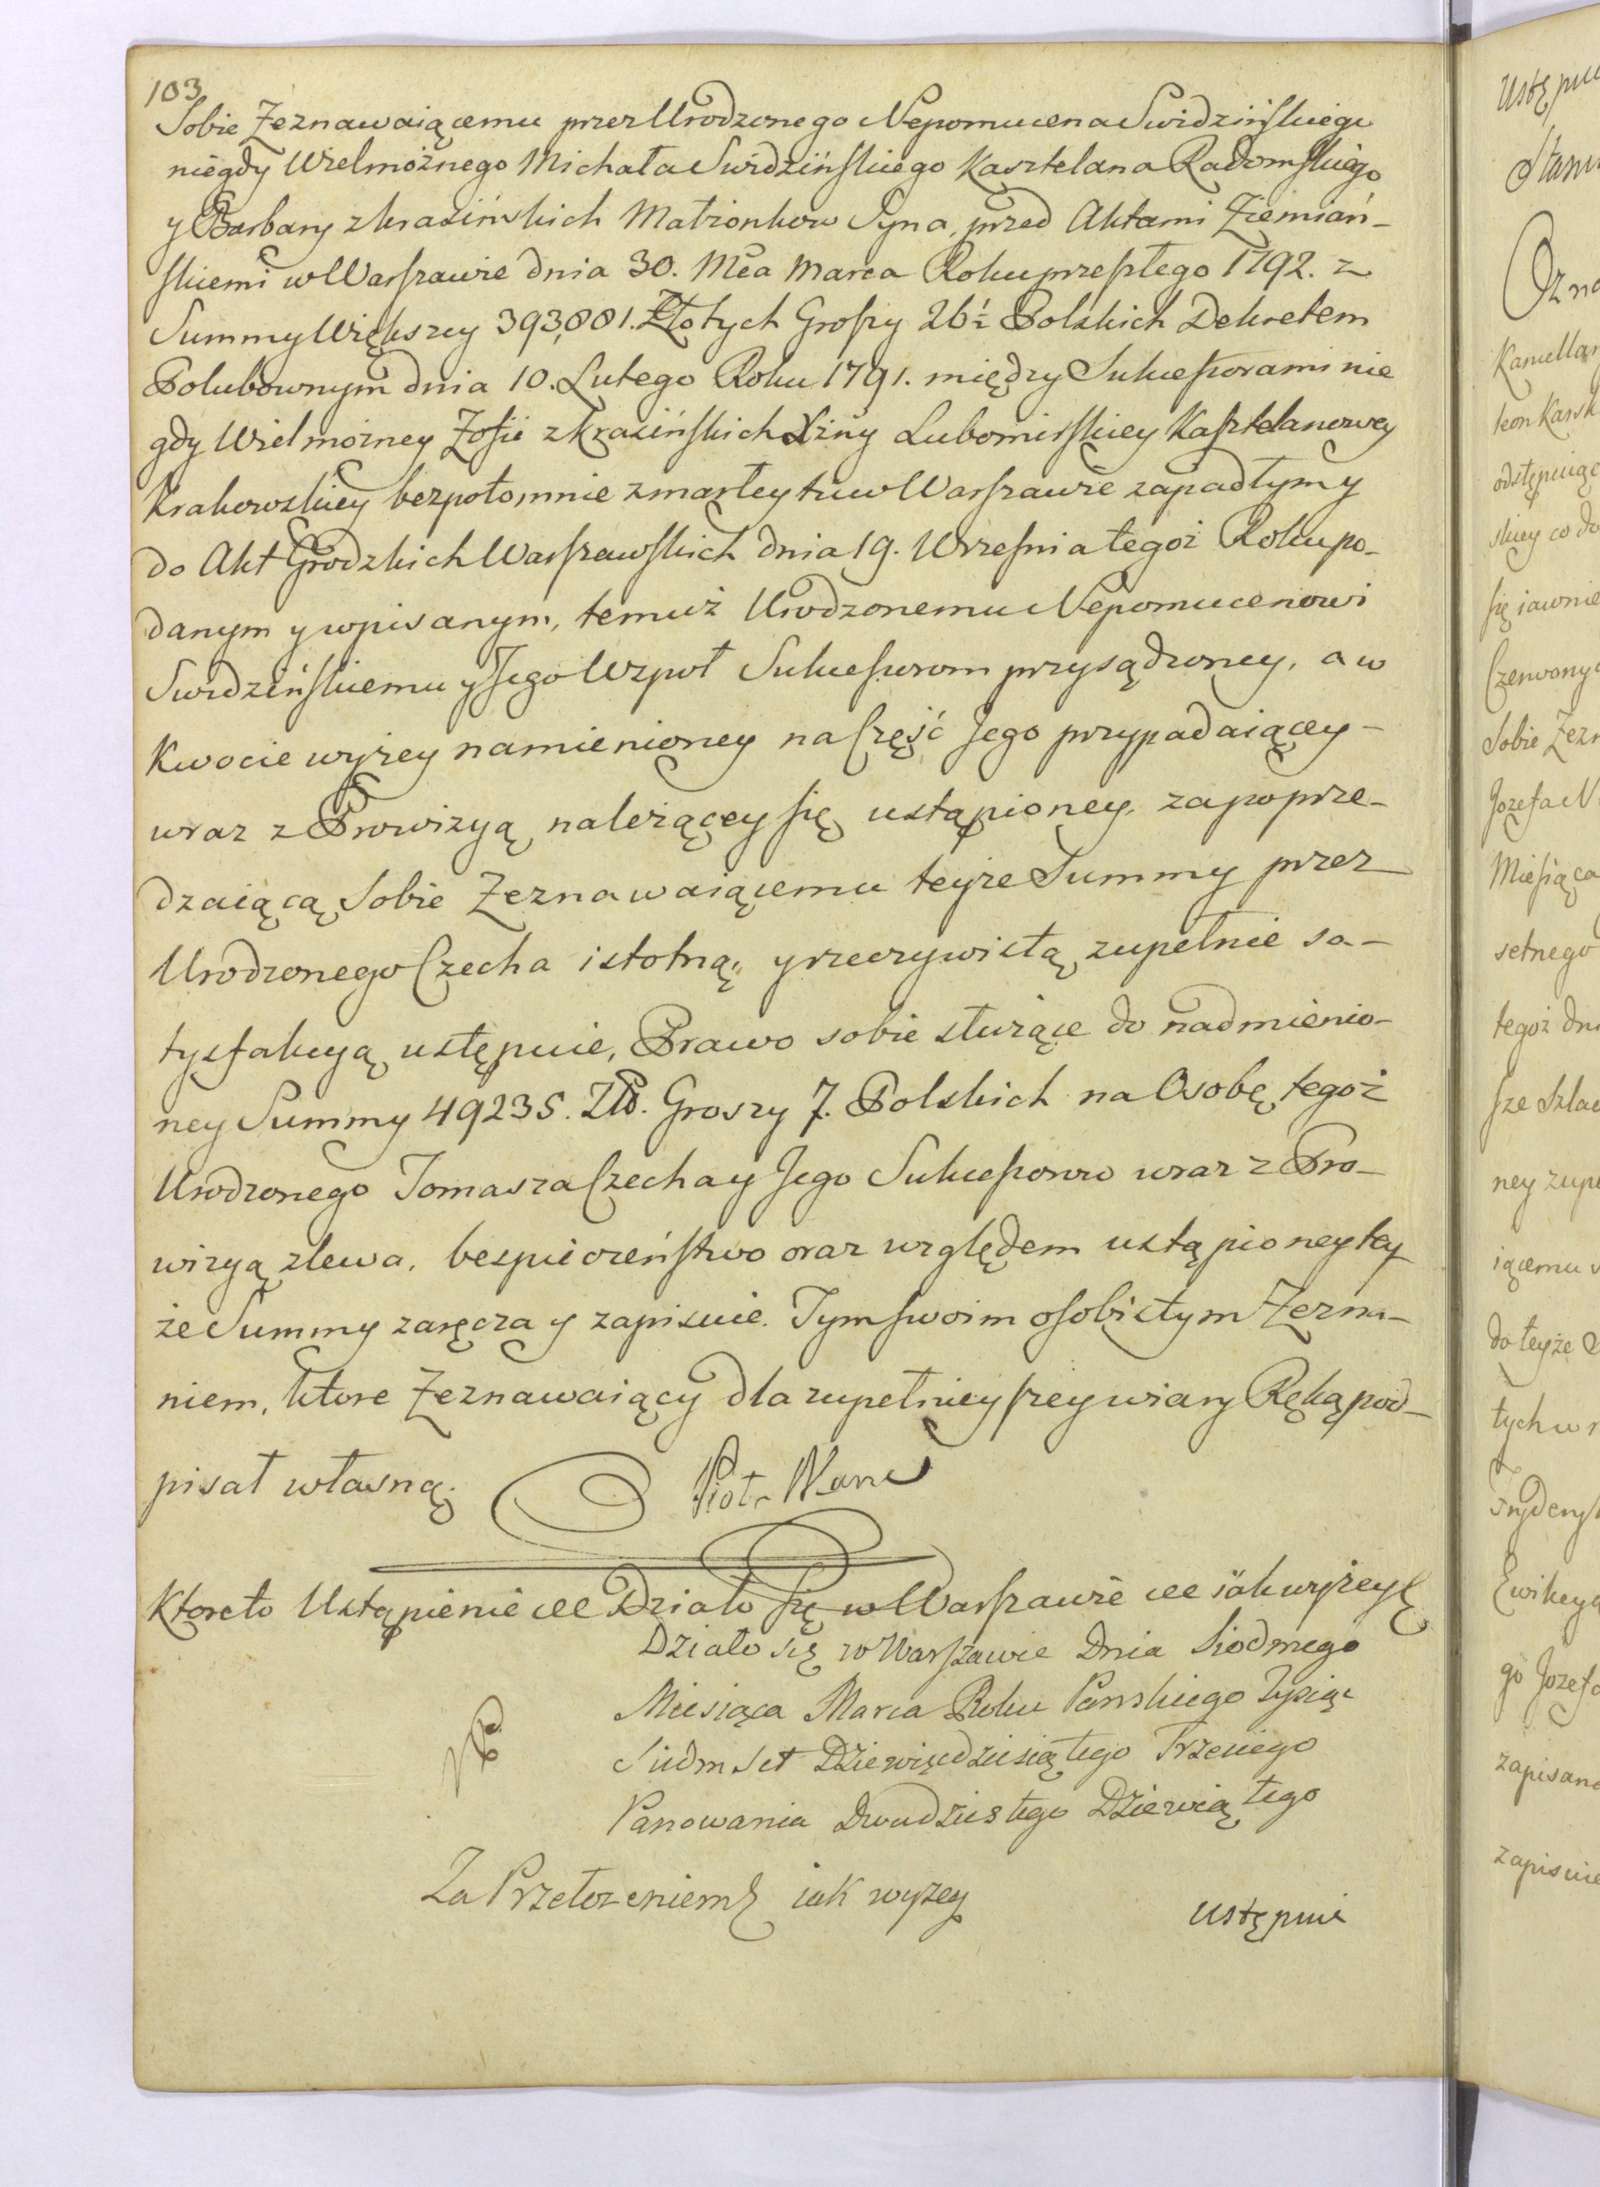 103
Sobie Zeznawaiącemu przez Urodzonego Nepomucena Swidzińskiego
niegdy Wielmożnego Michała Swidzińskiego Kasztelana Radomskiego
y Barbary z Krasińskich Małżonkow Syna, przed Aktami Ziemiań-
skiemi w Warszawie dnia 30. Mca Marca Roku przeszłego 1792. z
Summy Większey 393,881. Złotych Groszy 26½ Polskich Dekretem
Polubownym dnia 10. Lutego Roku 1791. między Sukcessorami nie
gdy Wielmożney Zofii z Krasińskich Xżny Lubomirskiey Kasztelanowey
Krakowskiey bezpotomnie zmarłey tu w Warszawie zapadłym y
do Akt Grodzkich Warszawskich dnia 19. Września tegoż Roku po-
danym y wpisanym, temuż Urodzonemu Nepomucenowi
Swidzińskiemu y Jego Wzpoł Sukcessorom przysądzoney, a w
Kwocie wyżey namienioney na Część Jego przypadaiącey -
wraz z Prowizyą należącey się ustąpioney, za poprze-
dzaiącą Sobie Zeznawaiącemu teyże Summy przez
Urodzonego Czecha istotną, y rzeczywistą zupełnie sa-
tysfakcyą ustępuie, Prawo sobie służące do nadmienio-
ney Summy 49235. Złł. Groszy 7. Polskich na Osobę tegoż
Urodzonego Tomasza Czecha y Jego Sukcessorow wraz z Pro-
wizyą zlewa, bespieczeństwo oraz względem ustąpioney tey
że Summy zaręcza y zapisuie. Tym swoim osobistym Zezna-
niem, ktore Zeznawaiący dla zupełnieyszey wiary Ręką pod-
pisał własną.
Piotr
Ktoreto Ustąpienie etc Działo się w Warszawie etc iak wyżey
Działo się w Warszawie Dnia Siodmego
Miesiąca Marca Roku Panskiego Tysiąc
Siedm Set Dziewięcdziesiątego Trzeciego
Panowania Dwudziestego Dziewiątego
Za Przełożeniem iak wyżey
ustępuie